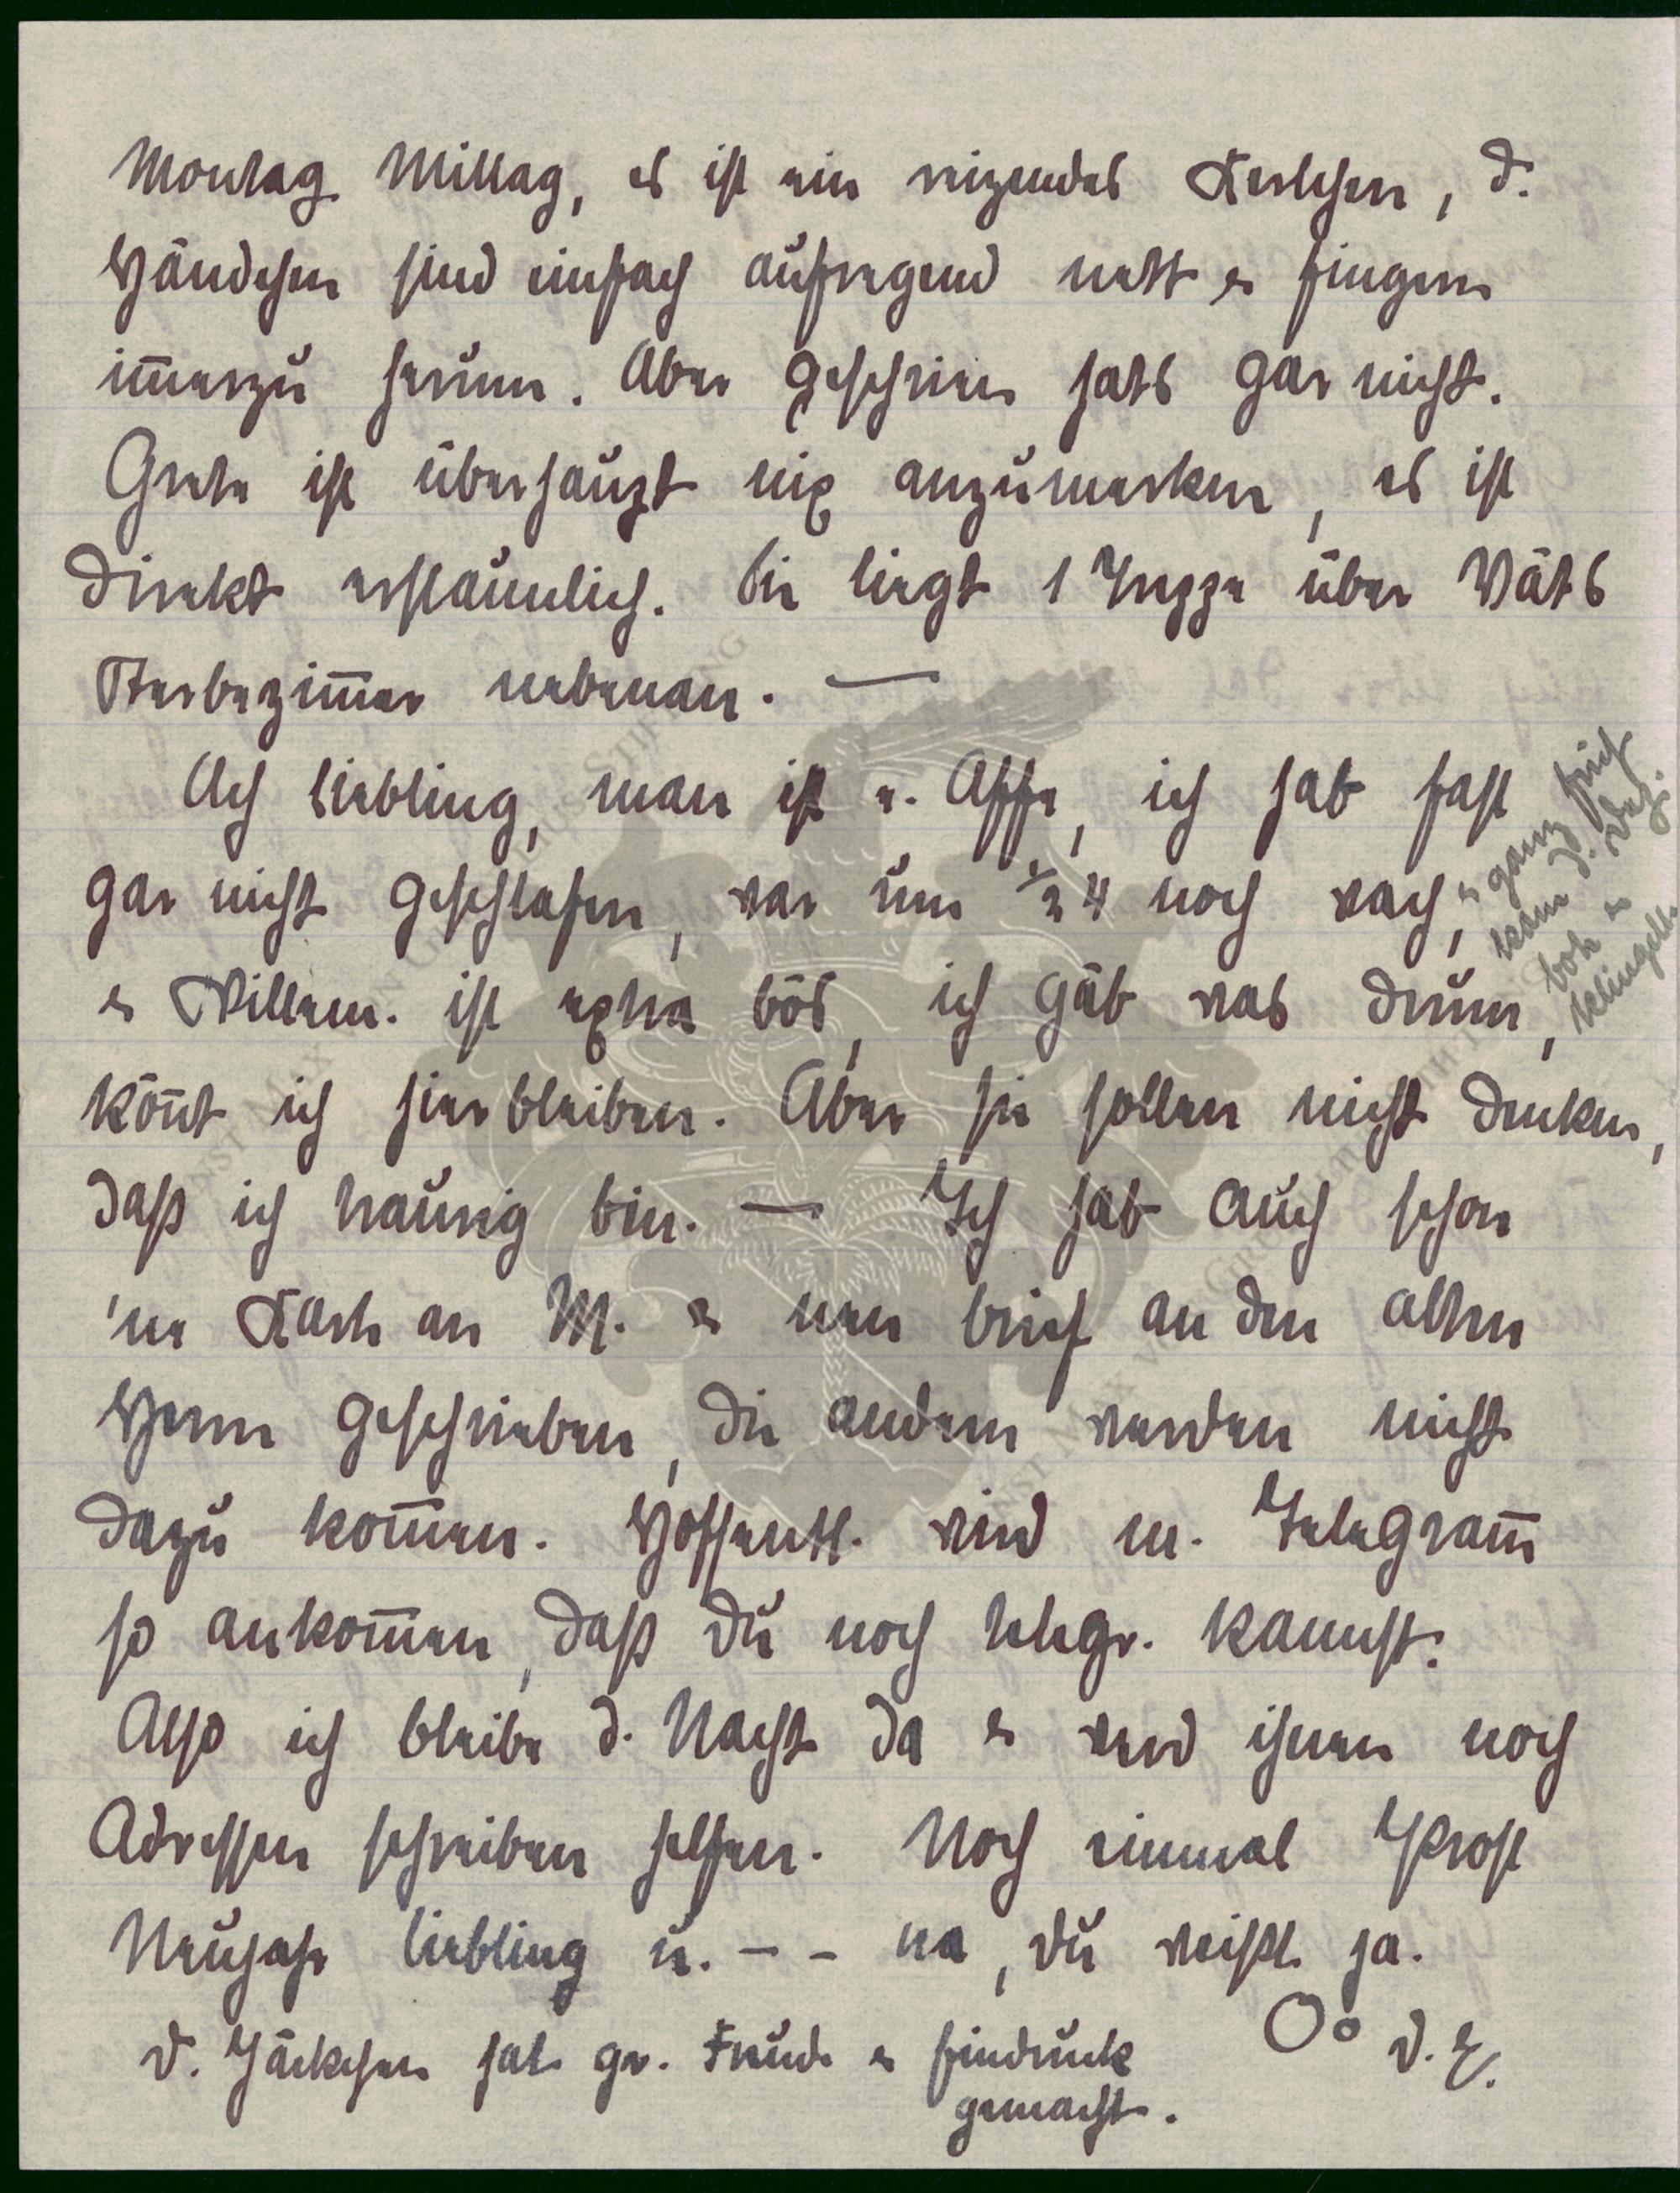 Montag Mittag, es ist ein reizendes Kerlchen, d.
Händchen sind einfach aufregend nett u fingern
im̅erzu herum. Aber geschrien hats gar nicht.
Grete ist überhaupt nix anzumerken, es ist
direkt erstaunlich. Sie liegt 1 Treppe über Väts
Sterbezim̅er nebenan. —
Ach Liebling, man ist e. Affe, ich hab fast
gar nicht geschlafen, war um ½ 4 noch wach, u ganz früh
kam d.
Bote u
klingelte
u Willem. ist extra bös, ich gäb was drum,
kön̅t ich hier bleiben. Aber sie sollen nicht denken,
daß ich traurig bin. — Ich hab auch schon
'ne Karte an M. u nen Brief an den alten
Herrn geschrieben, die andern werden nicht
dazu kom̅en. Hoffentl. wird m. Telegram̅
so ankom̅en, daß Du noch telegr. kannst.
Also ich bleibe d. Nacht da u werd ihnen noch
Adressen schreiben helfen. Noch einmal Prost
Neujahr Liebling u. – – na, Du weißt ja.
D. Jäckchen hat gr. Freude u Eindruck
gemacht.
O° D. E.